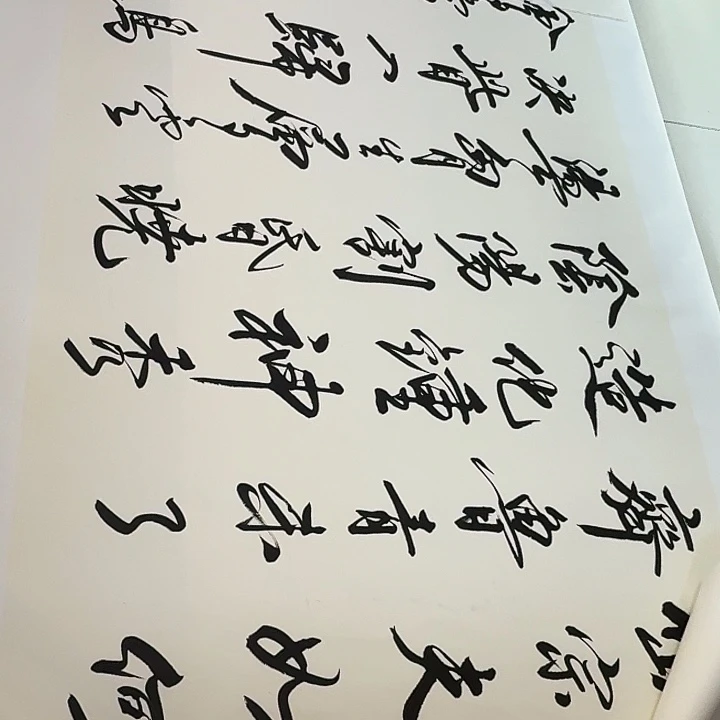 岱宗夫如何
齊魯青未了
造化鍾神秀
陰陽割昏曉
蕩胸生層雲
決眥入歸鳥
會